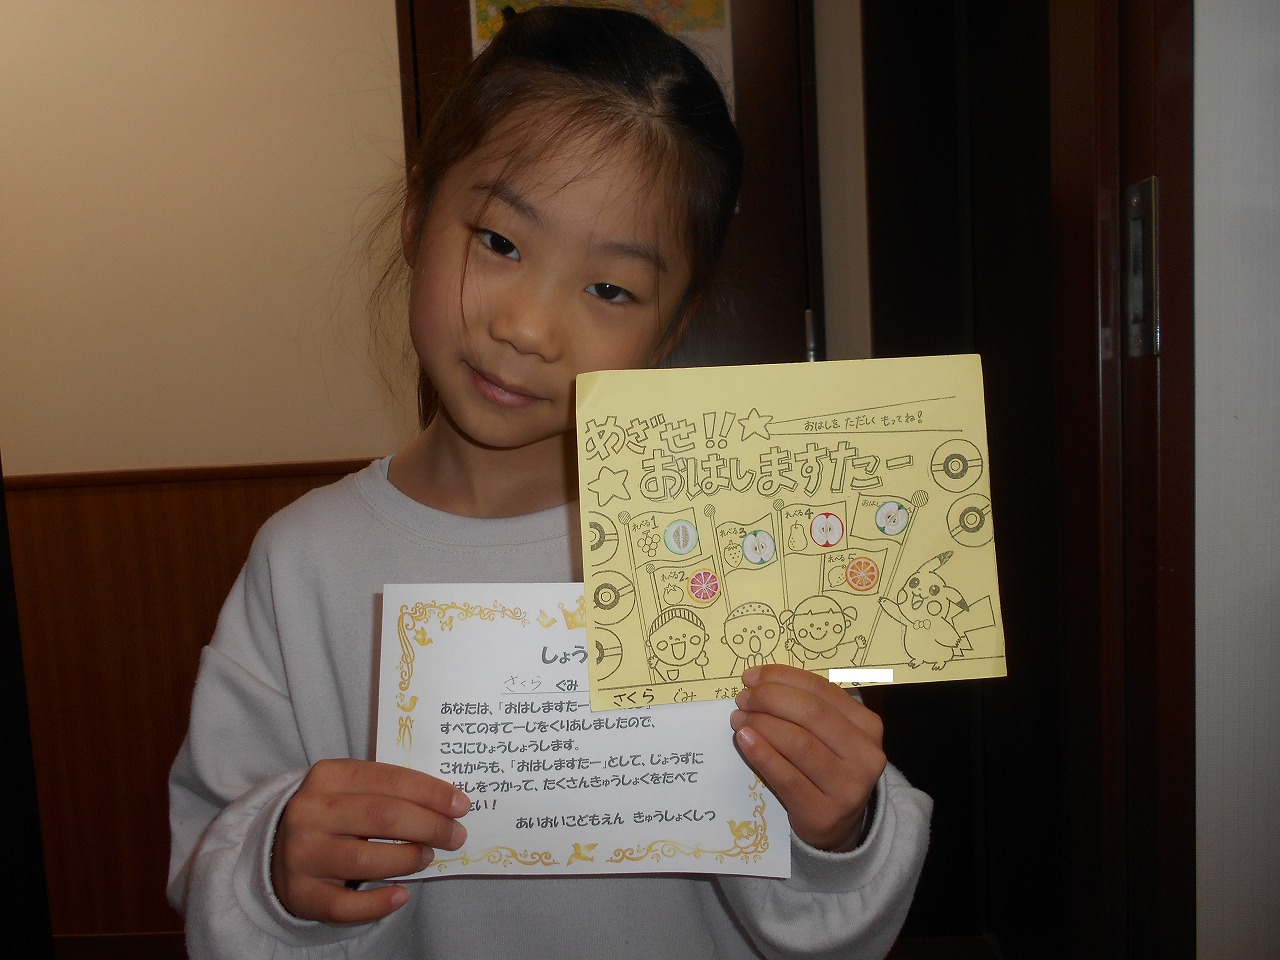 めざせ!!
おはしを ただしく もってね!
おはしますたー
れべる1
れべる2
れべる3
れべる4
れべる5
おはし
さくら ぐみ なま
しょう
さくら ぐみ
あなたは、「おはしますたー
すべてのすてーじをくりあしましたので、
ここにひょうしょうします。
これからも、「おはしますたー」として、じょうずに
はしをつかって、たくさんきゅうしょくをたべて
さい!
あいおいこどもえん きゅうしょくしつ